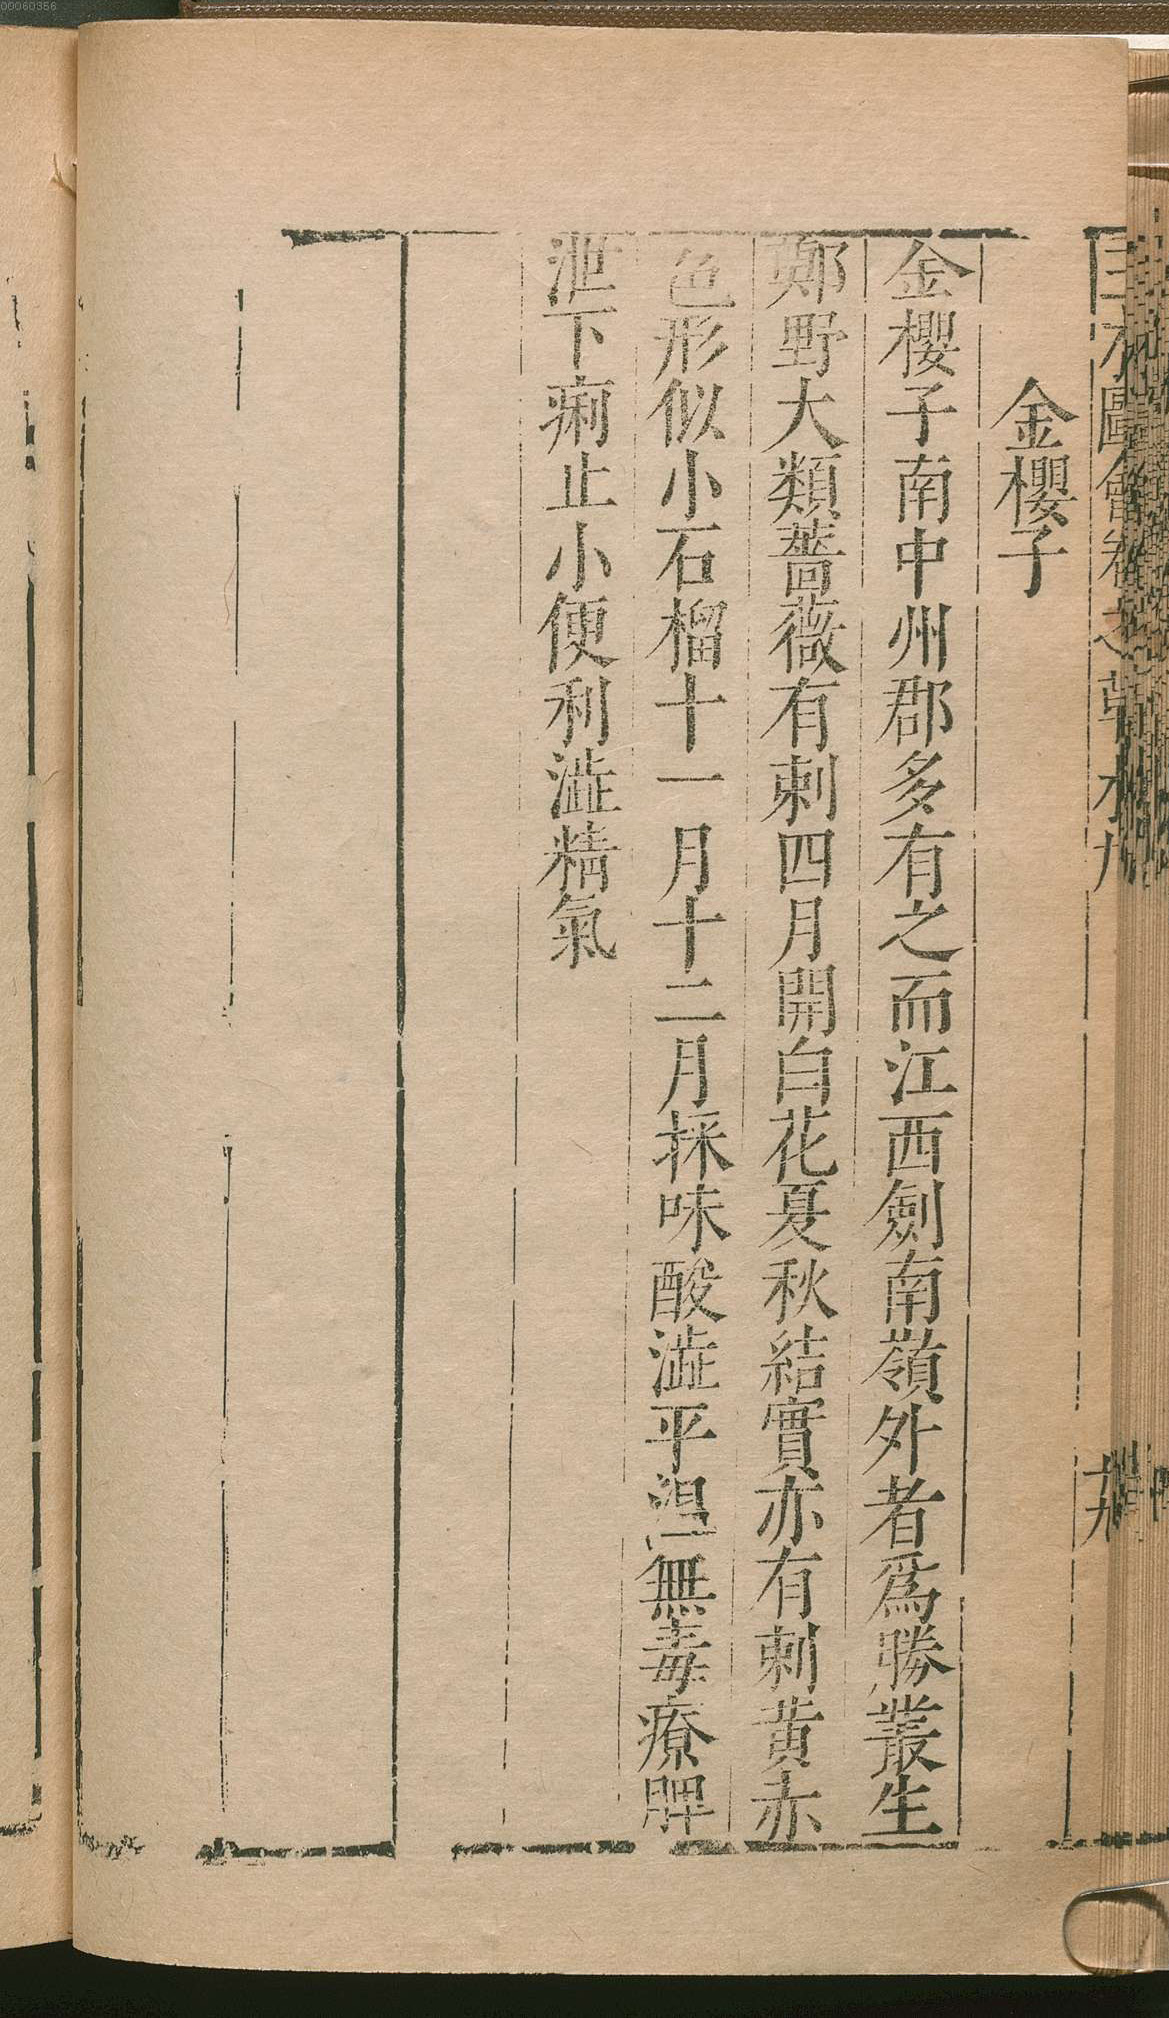 金櫻子
金櫻子南中州郡多有之而江西劍南嶺外者爲勝叢生
鄭野大類薔薇有刺四月開白花夏秋結實亦有刺黃赤
色形似小石榴十一月十二月採味酸澁平温無毒療脾
泄下痢止小便利澁精氣
十九
00060356